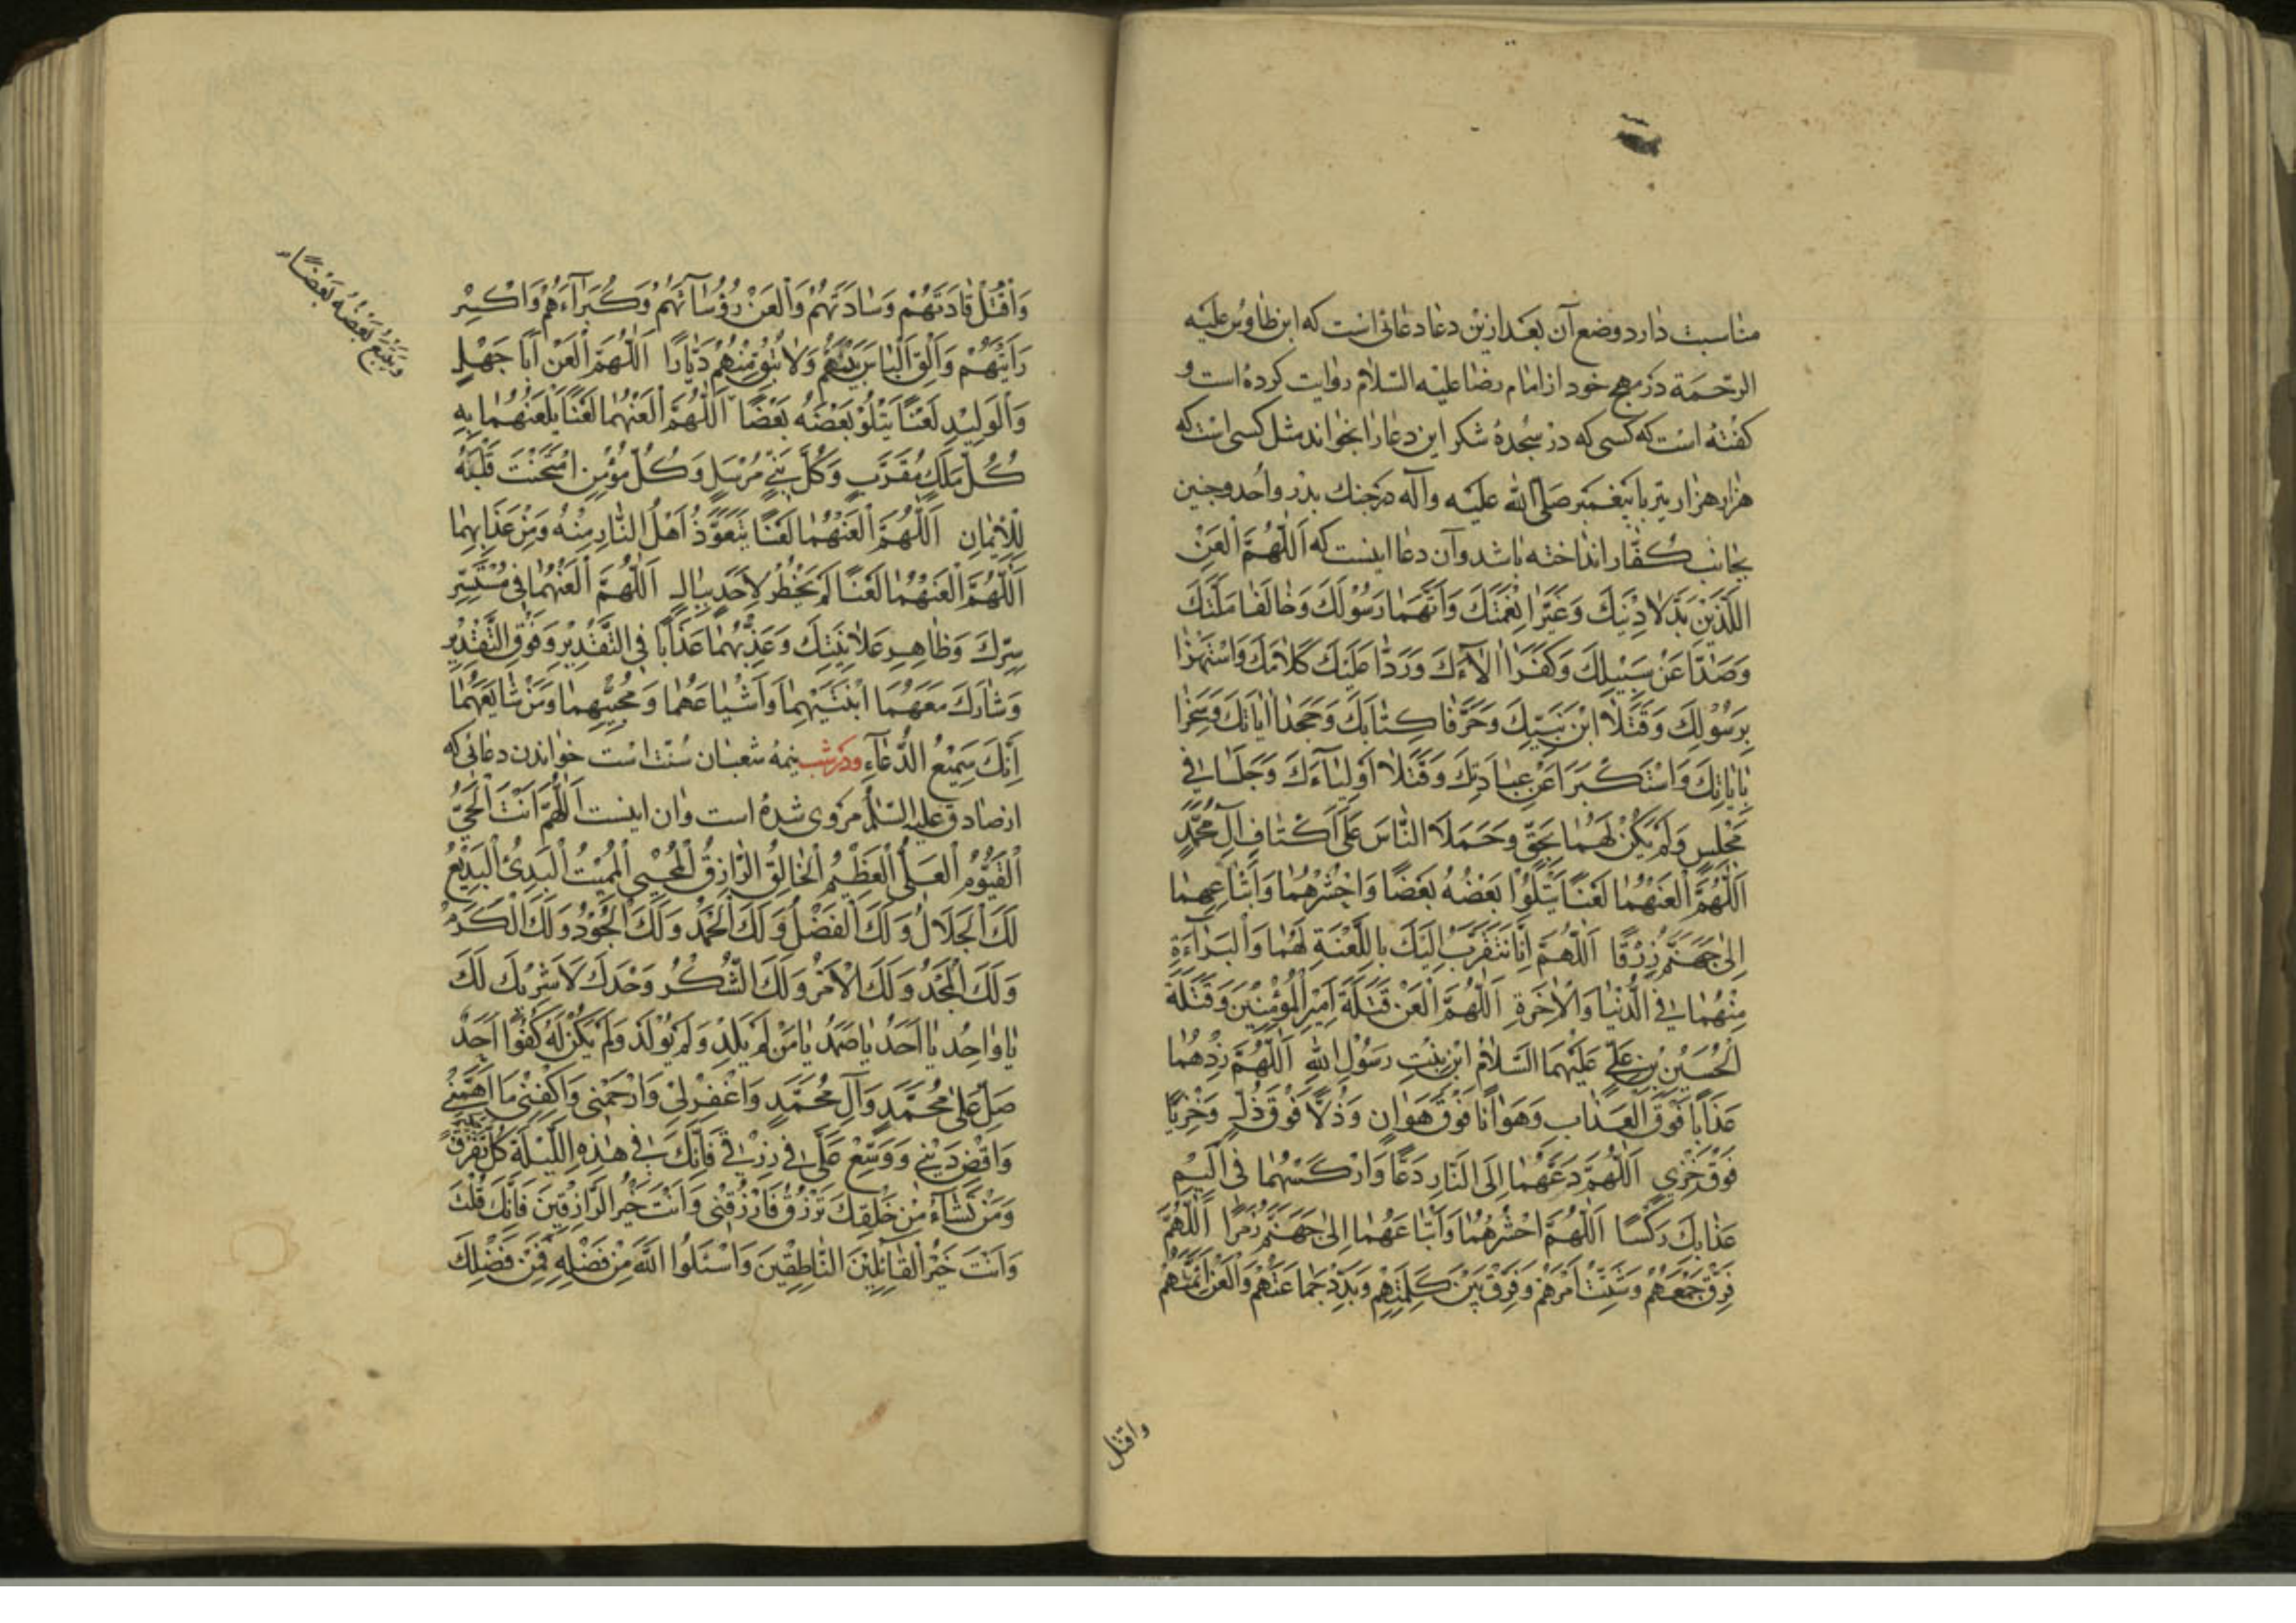 مناسبت دارد وضع آن بعد ازین دعا دعائی است که ابن طاوس علیه
الرّحمة در مهج خود از امام رضا علیه السّلام روایت کرده است و
کفته است که کسی که در سجدهٔ شکر این دعا را بخواند مثل کسی است که
هزار هزار تیر با پیغمبر صلی الله علیه وآله در جنك بدر و احد و حنین
بجانب کفّار انداخته باشد و آن دعا اینست که اَللّٰهُمَّ الْعَنْ
اللَّذَيْنِ بَدَّلا دِيْنَكَ وَغَيَّرا نِعْمَتَكَ وَاتَّهَما رَسُوْلَكَ وَخالَفا مِلَّتَكَ
وَصَدّا عَنْ سَبِيْلِكَ وَكَفَرا الآءَكَ وَرَدّا عَلَيْكَ كَلامَكَ وَاسْتَهْزَا
بِرَسُوْلِكَ وَقَتَلا ابْنَ نَبِيِّكَ وَحَرَّفا كِتابَكَ وَجَحَدا اياتِكَ وَسَخِرا
بِاياتِكَ وَاسْتَكْبَرا عَنْ عِبادَتِكَ وَقَتَلا اَوْلِيآءَكَ وَجَلَسا فِي
مَجْلِسٍ وَلَمْ يَكُنْ لَهُما بِحَقٍّ وَحَمَلا النّاسَ عَلى اَكْتافِ آلِ مُحَمَّدٍ
اَللّٰهُمَّ الْعَنْهُما لَعْنًا يَتْلُوْا بَعْضُهُ بَعْضًا وَاحْشُرْهُما وَاَتْباعَهُما
اِلى جَهَنَّمَ زُرْقًا اَللّٰهُمَّ اِنّا نَتَقَرَّبُ اِلَيْكَ بِاللَّعْنَةِ لَهُما وَالْبَرآءَةِ
مِنْهُما فِي الدُّنْيا وَالْاٰخِرَةِ اَللّٰهُمَّ الْعَنْ قَتَلَةَ اَمِيْرِ الْمُؤْمِنِيْنَ وَقَتَلَةَ
الْحُسَيْنِ بْنِ عَلِيٍّ عَلَيْهِمَا السَّلامُ ابْنِ بِنْتِ رَسُوْلِ اللهِ اَللّٰهُمَّ زِدْهُما
عَذابًا فَوْقَ الْعَذابِ وَهَوانًا فَوْقَ هَوانٍ وَذُلًّا فَوْقَ ذُلٍّ وَخِزْيًا
فَوْقَ خِزْيٍ اَللّٰهُمَّ دُعَّهُما اِلَى النّارِ دَعًّا وَارْكُسْهُما فِي اَلِيْمِ
عَذابِكَ رَكْسًا اَللّٰهُمَّ احْشُرْهُما وَاَتْباعَهُما اِلى جَهَنَّمَ زُمَرًا اَللّٰهُمَّ
فَرِّقْ جَمْعَهُمْ وَشَتِّتْ اَمْرَهُمْ وَفَرِّقْ بَيْنَ كَلِمَتِهِمْ وَبَدِّدْ جَماعَتَهُمْ وَالْعَنْ اَئِمَّتَهُمْ
واقتل
وَاقْتُلْ قادَتَهُمْ وَسادَتَهُمْ وَالْعَنْ رُؤَسآئَهُمْ وَكُبَرآءَهُمْ وَاكْسِرْ
رايَتَهُمْ وَاَلْقِ الْبَاْسَ بَيْنَهُمْ وَلا تُبْقِ مِنْهُمْ دَيّارًا اَللّٰهُمَّ الْعَنْ اَبا جَهْلٍ
وَالْوَلِيْدَ لَعْنًا يَتْلُوْ بَعْضُهُ بَعْضًا اَللّٰهُمَّ الْعَنْهُما لَعْنًا يَلْعَنُهُما بِهِ
وَيَتْبَعُ بَعْضُهُ بَعْضًا
كُلُّ مَلَكٍ مُقَرَّبٍ وَكُلُّ نَبِيٍّ مُرْسَلٍ وَكُلُّ مُؤْمِنٍ امْتَحَنْتَ قَلْبَهُ
لِلْاِيْمانِ اَللّٰهُمَّ الْعَنْهُما لَعْنًا يَتَعَوَّذُ اَهْلُ النّارِ مِنْهُ وَمِنْ عَذابِهِما
اَللّٰهُمَّ الْعَنْهُما لَعْنًا لَمْ يَخْطُرْ لِاَحَدٍ بِبالٍ اَللّٰهُمَّ الْعَنْهُما فِي مُسْتَسِرِّ
سِرِّكَ وَظاهِرِ عَلانِيَتِكَ وَعَذِّبْهُما عَذابًا فِي التَّقْدِيْرِ وَفَوْقَ التَّقْدِيْرِ
وَشارِكْ مَعَهُمَا ابْنَتَيْهِما وَاَشْياعَهُما وَمُحِبِّيْهِما وَمَنْ شايَعَهُما
اِنَّكَ سَمِيْعُ الدُّعآءِ ودر شب نیمهٔ شعبان سنّت است خواندن دعائی که
از صادق علیه السّلام مروی شده است و ان اینست اَللّٰهُمَّ اَنْتَ الْحَيُّ
الْقَيُّوْمُ الْعَلِيُّ الْعَظِيْمُ الْخالِقُ الرّازِقُ الْمُحْيِى الْمُمِيْتُ الْبَدِىْءُ الْبَدِيْعُ
لَكَ الْجَلالُ وَلَكَ الْفَضْلُ وَلَكَ الْحَمْدُ وَلَكَ الْجُوْدُ وَلَكَ الْكَرَمُ
وَلَكَ الْمَجْدُ وَلَكَ الْاَمْرُ وَلَكَ الشُّكْرُ وَحْدَكَ لا شَرِيْكَ لَكَ
يا واحِدُ يا اَحَدُ يا صَمَدُ يا مَنْ لَمْ يَلِدْ وَلَمْ يُوْلَدْ وَلَمْ يَكُنْ لَهُ كُفُوًا اَحَدٌ
صَلِّ عَلى مُحَمَّدٍ وَآلِ مُحَمَّدٍ وَاغْفِرْ لِيْ وَارْحَمْنِى وَاكْفِنِيْ ما اَهَمَّنِيْ
وَاقْضِ دَيْنِيْ وَوَسِّعْ عَلَيَّ فِي رِزْقِي فَاِنَّكَ فِي هٰذِهِ اللَّيْلَةِ كُلَّ تُفَرِّقُ
وَمَنْ تَشآءُ مِنْ خَلْقِكَ تَرْزُقُ فَارْزُقْنِى وَاَنْتَ خَيْرُ الرّازِقِيْنَ فَاِنَّكَ قُلْتَ
وَاَنْتَ خَيْرُ الْقائِلِيْنَ النّاطِقِيْنَ وَاسْئَلُوا اللهَ مِنْ فَضْلِهِ فَمِنْ فَضْلِكَ